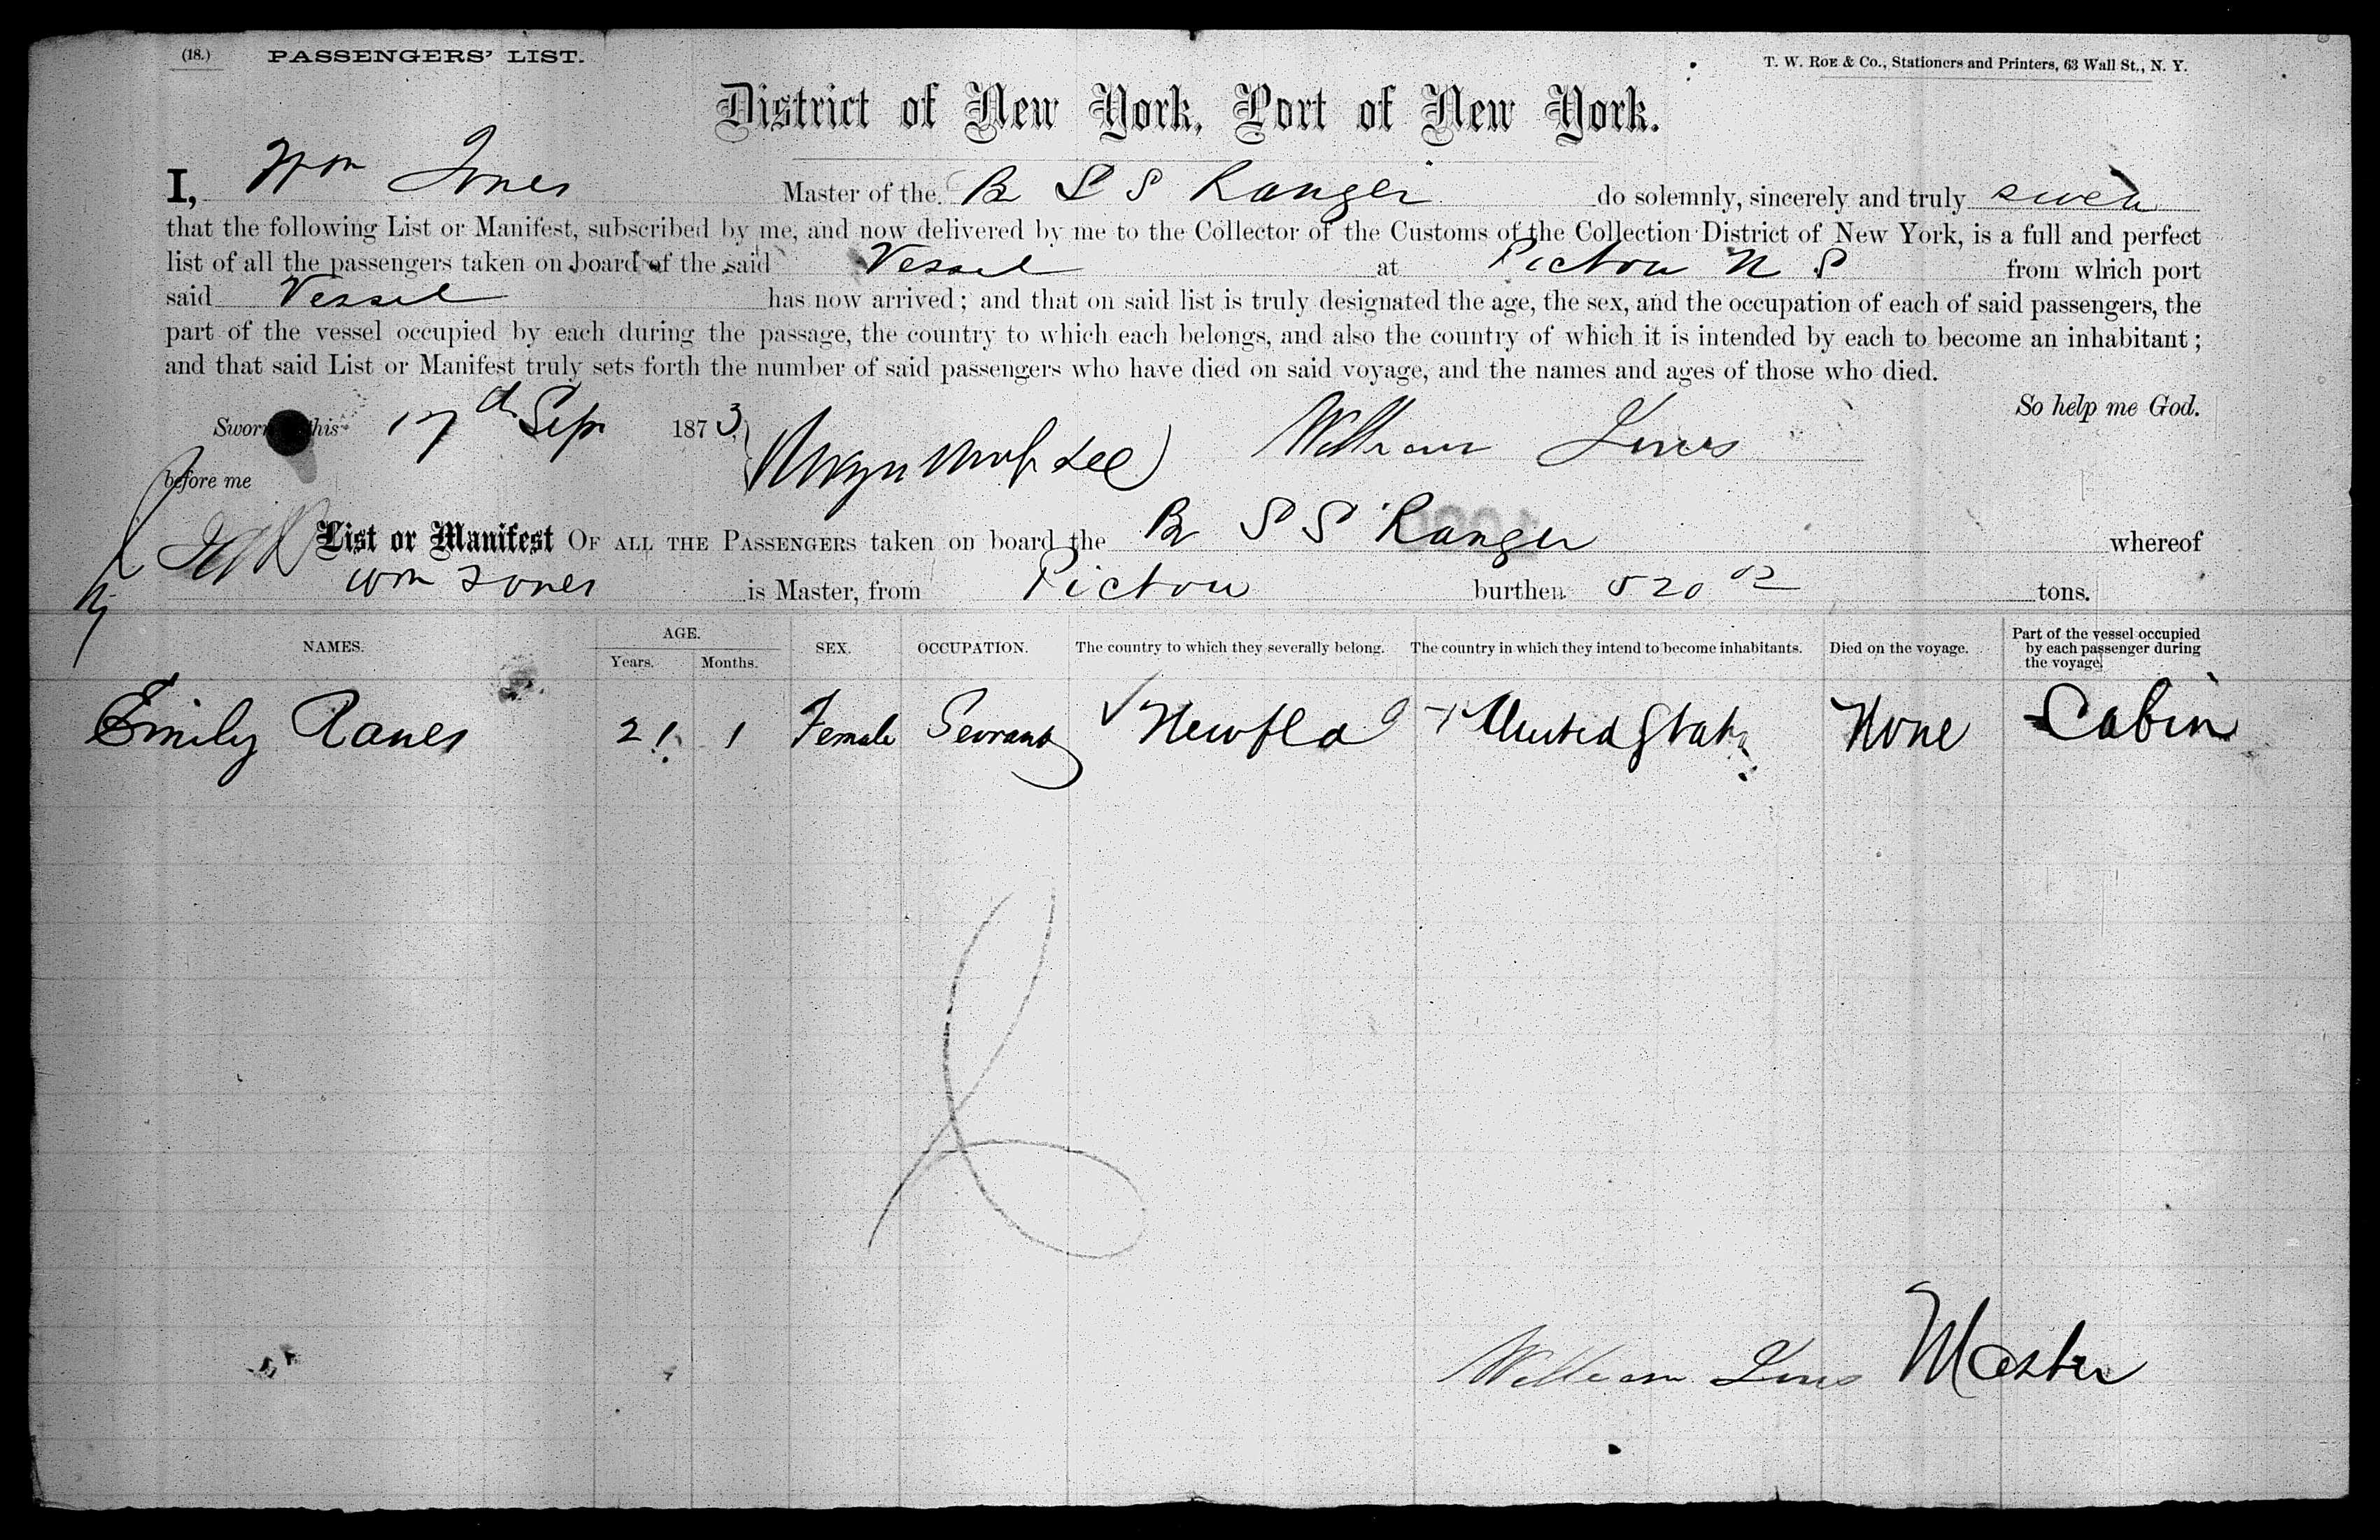 (18.) PASSENGERS' LIST.
T. W. ROE & Co., Stationers and Printers, 63 Wall St., N. Y.
District of New York, Port of New York.
I, Wm Jones Master of the Br S S Ranger do solemnly, sincerely and truly swear
that the following List or Manifest, subscribed by me, and now delivered by me to the Collector of the Customs of the Collection District of New York, is a full and perfect
list of all the passengers taken on board of the said Vessel at Pictou N S from which port
said Vessel has now arrived; and that on said list is truly designated the age, the sex, and the occupation of each of said passengers, the
part of the vessel occupied by each during the passage, the country to which each belongs, and also the country of which it is intended by each to become an inhabitant;
and that said List or Manifest truly sets forth the number of said passengers who have died on said voyage, and the names and ages of those who died.
So help me God.
Sworn this 17th Sep 1873, William Jones
before me
List or Manifest OF ALL THE PASSENGERS taken on board the Br S S Ranger whereof
Wm Jones is Master, from Pictou burthen 520 02 tons.
NAMES. AGE. Years. Months. SEX. OCCUPATION. The country to which they severally belong. The country in which they intend to become inhabitants. Died on the voyage. Part of the vessel occupied by each passenger during the voyage.
Emily 21 1 Female Servant Newfld United States None Cabin
William Jones Master